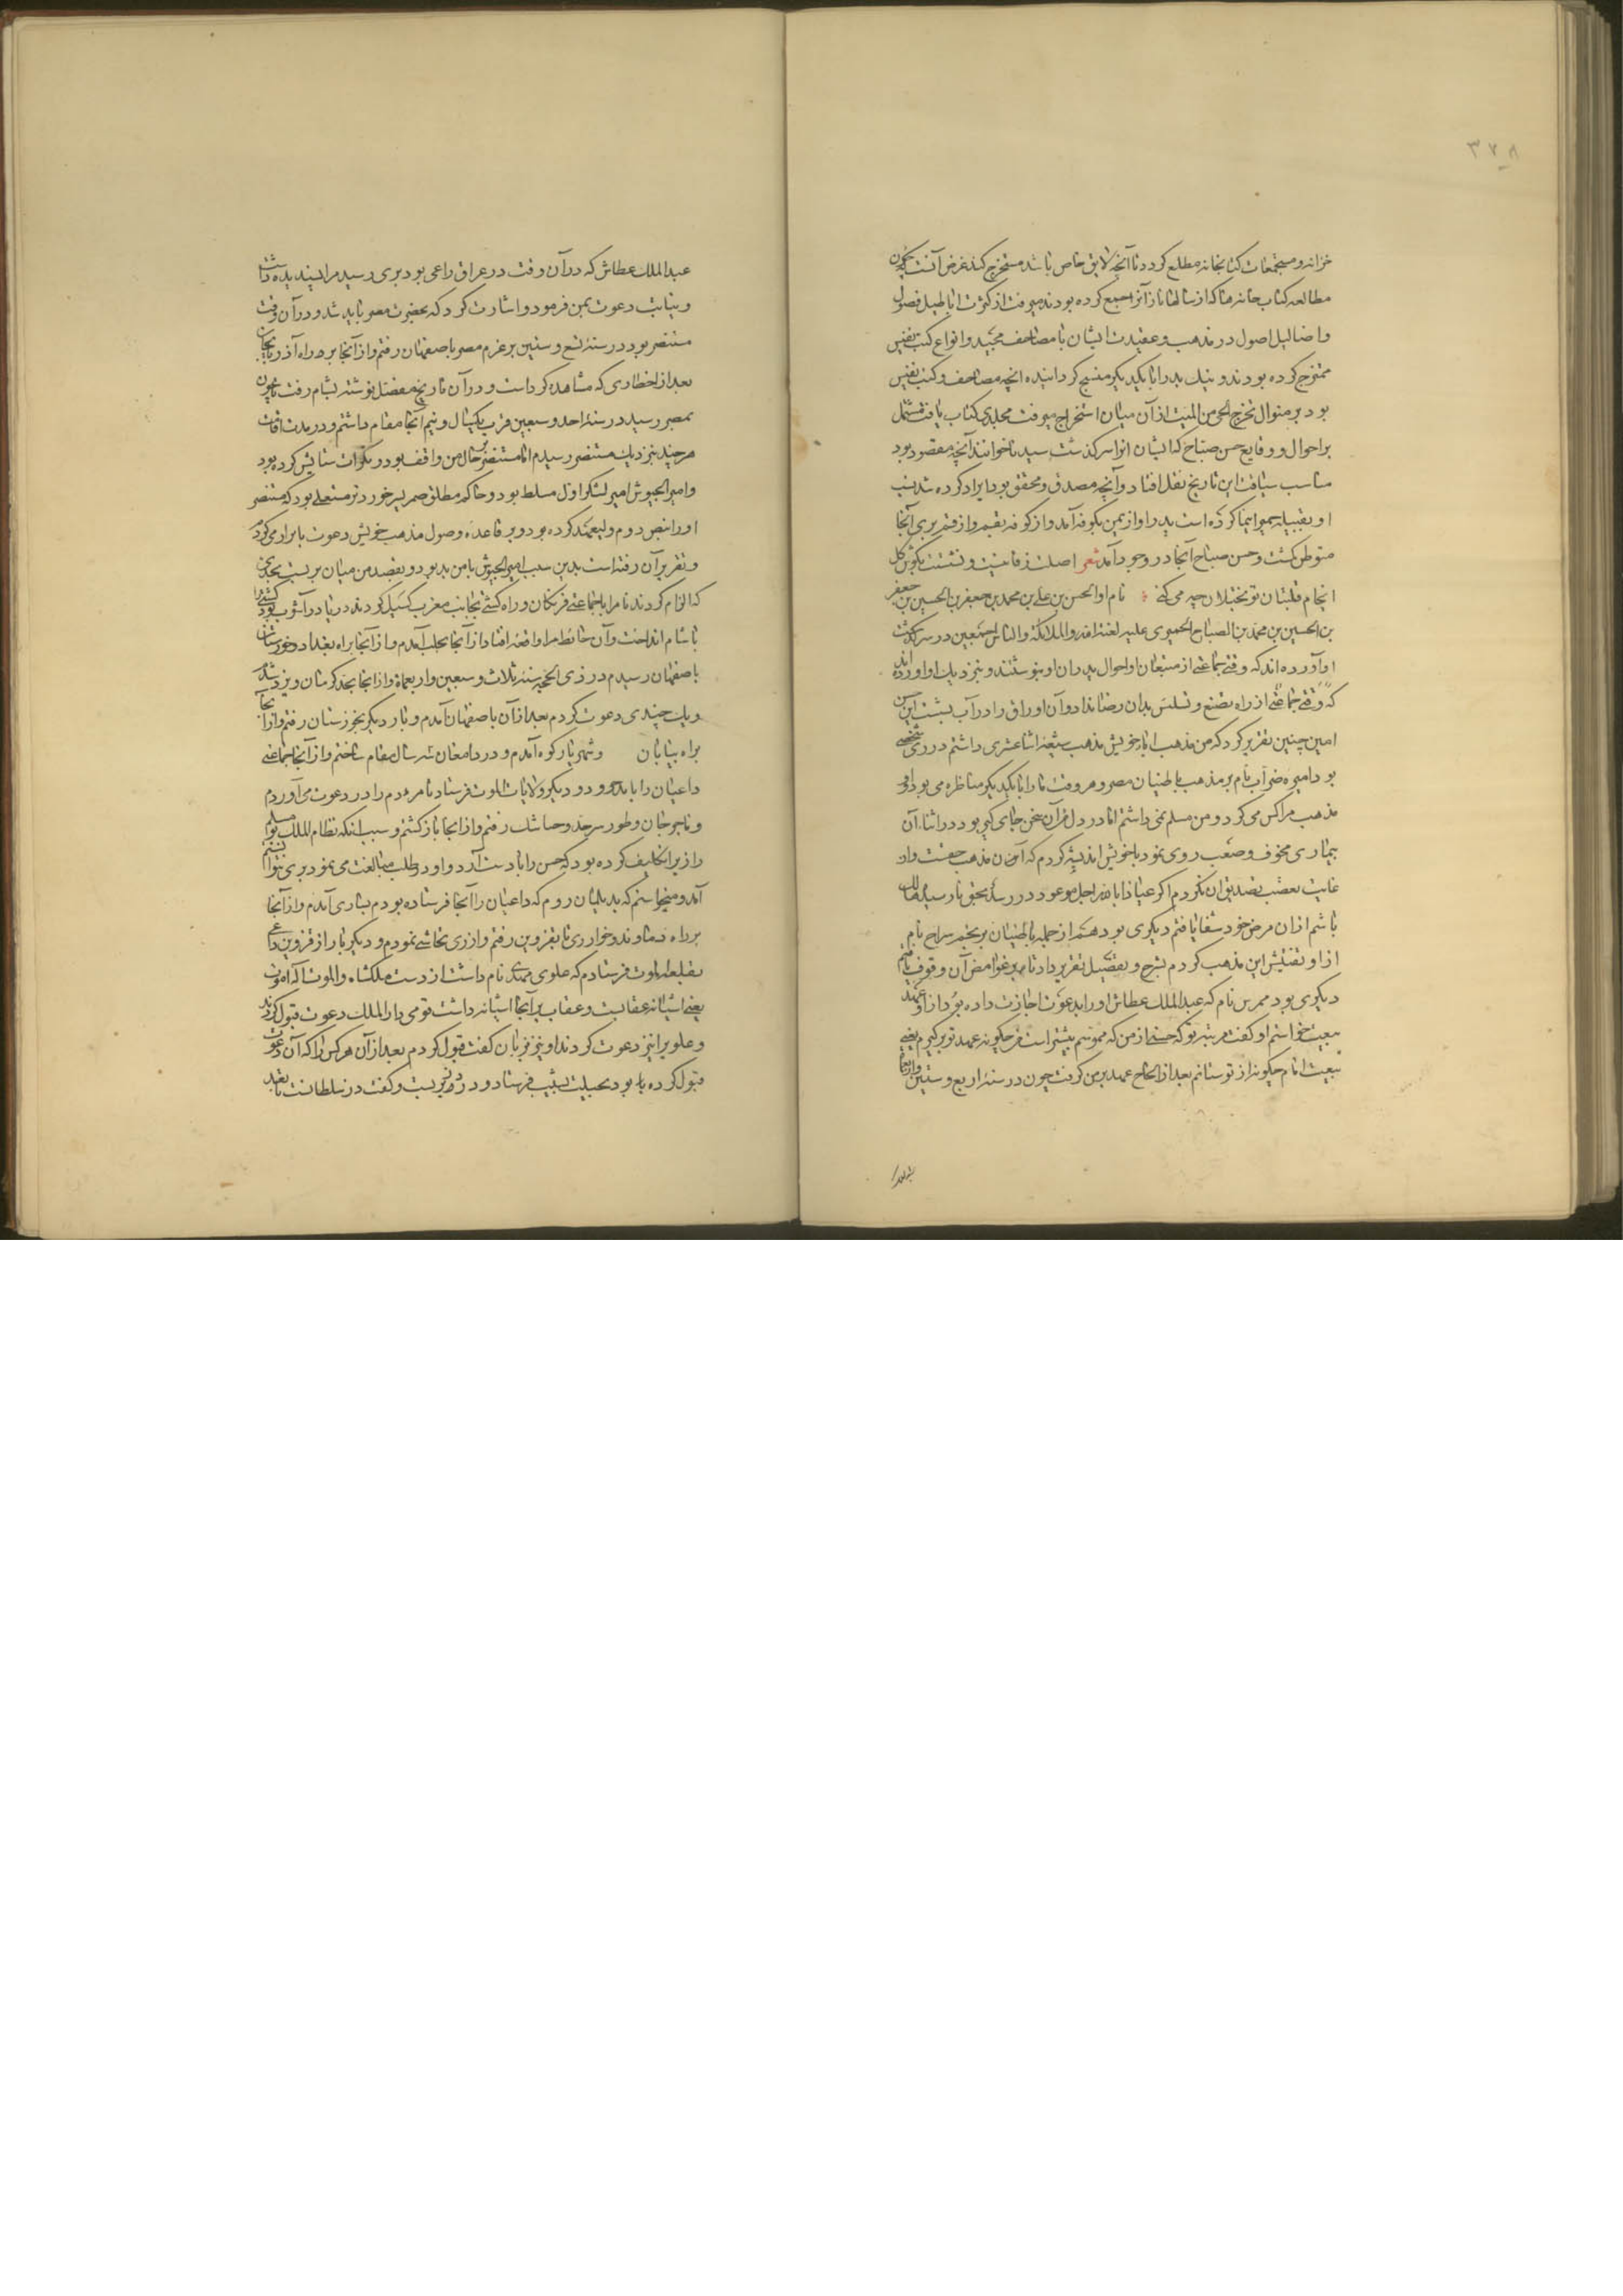 ۳۷۸
خزانه و مستجمعات کتابخانه مطلع کردد تا آنچه لایق خاص باشد مستخرج کند غرض آنست که چون
مطالعه کتاب خانه هتا که از سالها باز آنرا جمع کرده بودند میرفت از کثرت اباطیل فصول
و اضالیل اصول در مذهب و عقیدت ایشان با مصاحف مجید و انواع کتب نفیس
ممتزج کرده بودند و نیک بد را با یکدیکر منسج کردانیده انچه مصاحف و کتب نفیس
بود بر منوال تخرج الحی من المیت از آن میان استخراج میرفت مجلدی کتاب یافت مشتمل
بر احوال و وقایع حسن صباح که ایشان انرا سرکذشت سیدنا خوانند آنچه مقصود بود
مناسب سیاقت این تاریخ نقل افتاد و آنچه مصدق و محقق بود ایراد کرده شد نسب
او بقبیله حمیر انتما کرده است پدر او از یمن بکوفه آمد و از کوفه بقم و از قم بری آنجا
متوطن کشت و حسن صباح آنجا در وجود آمد شعر اصلت ز قاینیت و نشستت بکوش کل
انجام قلتبان تو بختلان چه می کنی نام او الحسن بن علی بن محمد بن جعفر بن الحسین بن جعفر
بن الحسین بن محمد بن الصباح الحمیری علیه لعنة الله و الملائکة و الناس اجمعین در سرکذشت
او آورده اند که وقتی جماعتی از متبعان او احوال پدران او بنوشتند و بنزدیک او آورده اند
که وقتی جماعتی از راه تصنع و تلبس بدان رضا نداد و آن اوراق را در آب بشست این
امین چنین تقریر کرد که من مذهب اباء خویش مذهب شیعه اثنا عشری داشتم در ری شخصی
بود امیره ضراب نام بر مذهب باطنیان مصر و هر وقت ما را با یکدیکر مناظره می بود او
مذهب مرا کسر می کرد و من مسلم نمی داشتم اما در دل من آن سخن جای کیر بود در اثناء آن
بیماری مخوف و صعب روی نمود با خویش اندیشه کردم که آن مذهب حقست و از
غایت تعصب تصدیق آن نکردم اکر عیاذا بالله اجل موعود در رسد بحق نارسیده هالک
باشم از آن مرض خود شفا یافتم دیکری بود هم از جمله باطنیان بونجم سراج نام
از او تفتیش این مذهب کردم بشرح و تفصیل تقریر داد تا بر غوامض آن وقوف یافتم
دیکری بود ممرین نام که عبد الملک عطاش او را بدعوت اجازت داده بود از او عهد
بیعت خواستم او کفت مرتبه تو که حسنی از من که مؤمنم بیشتر است من چکونه عهد تو برکیرم یعنی
بیعت امام چکونه از تو ستانم بعد از الحاح عهد بر من کرفت چون در سنه اربع و ستین و اربعمائة
عبد الملک عطاش که در آن وقت در عراق داعی بود بری رسید مرا پسندیده داشت
و نیابت دعوت بمن فرمود و اشارت کرد که بحضرت مصر باید شد و در آن وقت
مستنصر بود در سنه تسع و ستین بر عزم مصر باصفهان رفتم و از آنجا بر راه آذربیجان
بعد از اخطاری که مشاهده کرد است و در آن تاریخ مفصل نوشته بشام رفت تا چون
بمصر رسید در سنه احد و سبعین قرب یکسال و نیم آنجا مقام داشتم و در مدت اقامت
هر چند بنزدیک مستنصر نرسیدم اما مستنصر از حال من واقف بود و بکرات ستایش کرده بود
و امیر الجیوش امیر لشکر او که مسلط بود و حاکم مطلق صهر پسر خوردتر مستعلی بود که مستنصر
او را بنص دوم ولیعهد کرده بود و بر قاعده و صول مذهب خویش دعوت با برادر می کرد
و تقریر آن رفته است بدین سبب امیر الجیوش با من بد بود و بقصد من میان بر بست بحدی
که الزام کردند تا مرا با جماعتی فرنکان و راه کشتی بجانب مغرب کسیل کردند دریا در آشوب بود کشتی را
با شام انداخت و آن جایکاه مرا واقعه افتاد از آنجا بحلب آمدم و از آنجا براه بغداد و خوزستان
باصفهان رسیدم در ذی الحجه سنه ثلاث و سبعین و اربعمائة و از انجا بحد کرمان و یزد شد
و یک چندی دعوت کردم بعد از آن باصفهان آمدم و بار دیکر بخوزستان رفتم و از آنجا
براه بیابان و شهریار کوه آمدم و در دامغان سه سال مقام ساختم و از آنجا جماعتی
داعیان را باندجرود و دیکر ولایات الموت فرستاد تا مردم را در دعوت می آوردم
و تا جرجان و طرز سرحد و جناشک رفتم و از انجا باز کشتم و سبب آنکه نظام الملک بو مسلم
رازی را تکلیف کرده بود که حسن را با دست آرد و او در طلب مبالغت می نمود بری نتوانستم
آمد و میخواستم که بدیلمان روم که داعیان را آنجا فرستاده بودم بساری آمدم و از آنجا
بر راه دماوند و خوار ری تا بقزوین رفتم و از ری تحاشی نمودم و دیکر بار از قزوین داعی
بقلعه الموت فرستادم که علوی مهدی نام داشت از دست ملکشاه و الموت اله اموت
یعنی آشیانه عقابست و عقاب بر آنجا آشیانه داشت قومی در الموت دعوت قبول کردند
و علوی را نیز دعوت کردند او نیز بزبان کفت قبول کردم بعد از آن هر کس را که آن دعوت
قبول کرده بود بحیلت بشیب فرستاد و در دز بر بست و کفت دز سلطانست تا بعد